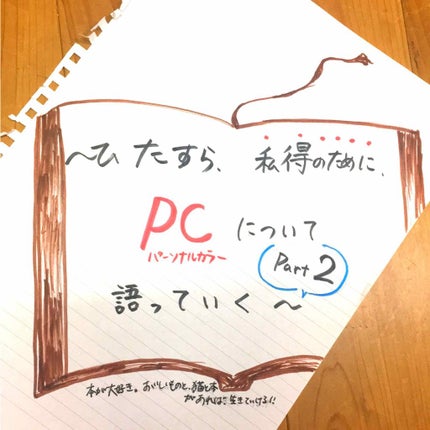 〜ひたすら、私得のために、
PCについて
パーソナルカラー
Part 2
語っていく〜
本が大好き。おいしいものと、猫と本
があれば生きていける!!